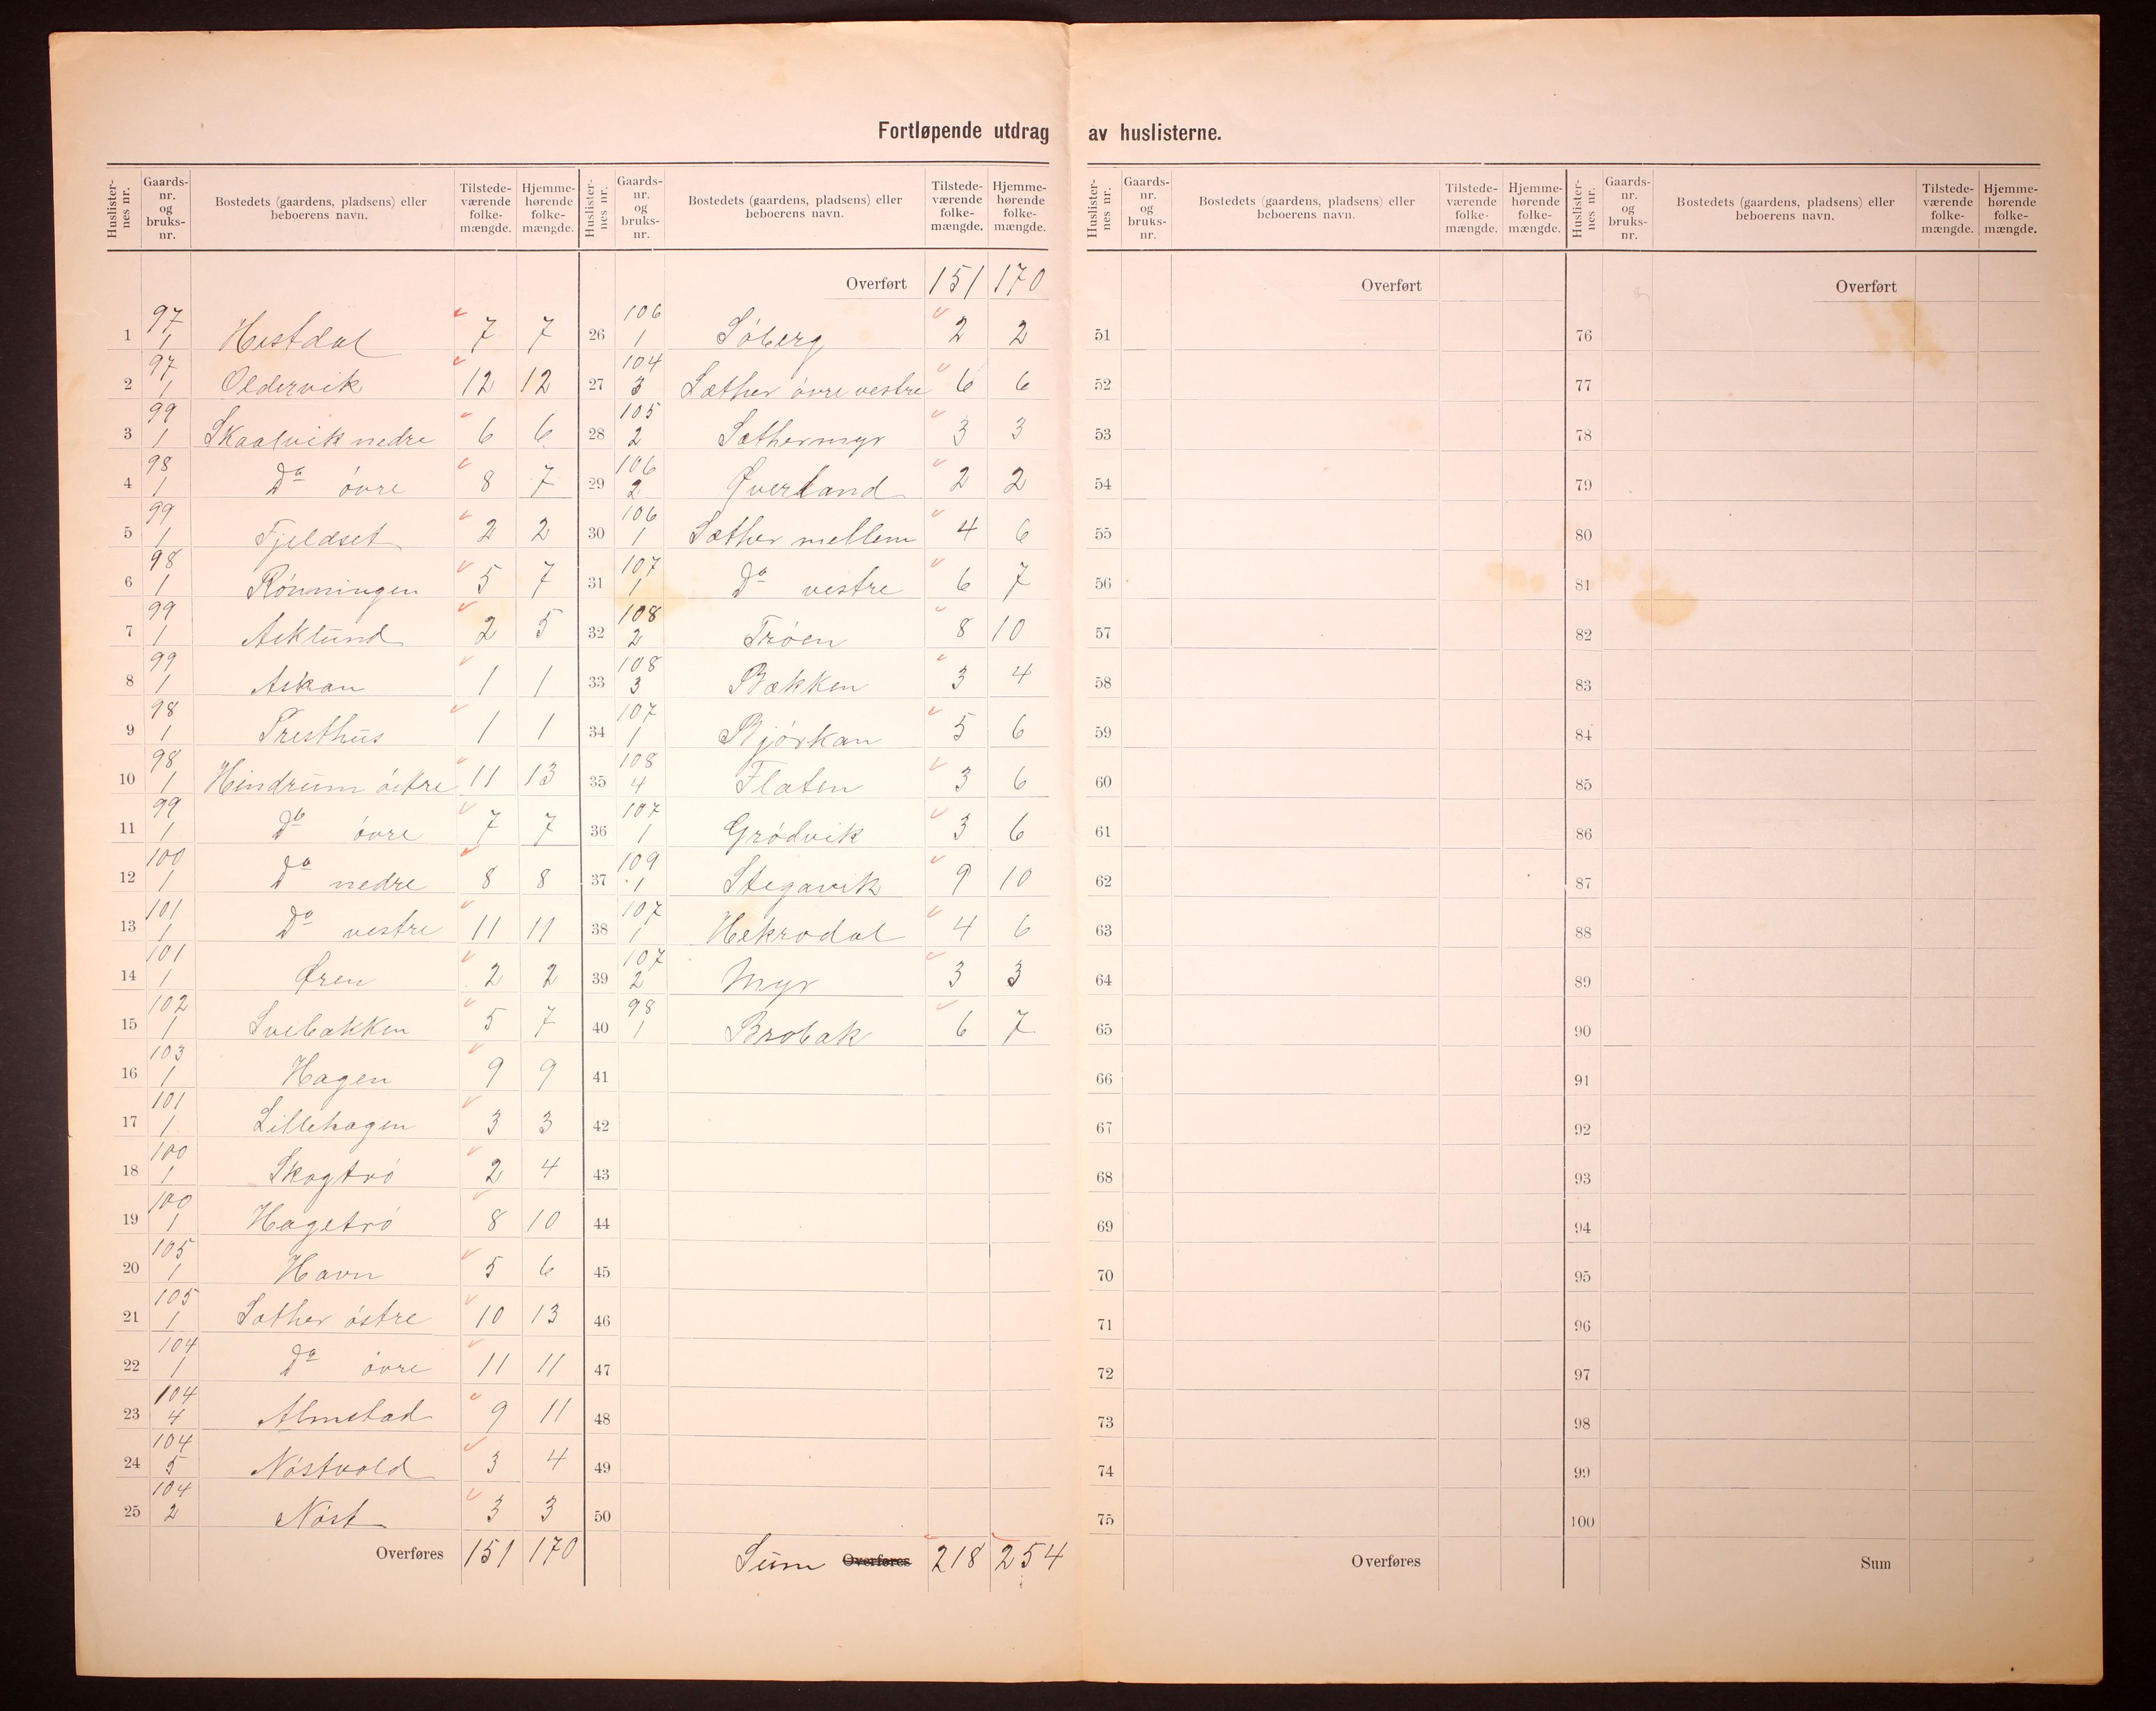 Fortløpende utdrag av huslisterne.
Huslisternes nr. Gaards-nr. og bruks-nr. Bostedets (gaardens, pladsens) eller beboerens navn. Tilstede-værende folke-mængde. Hjemme-hørende folke-mængde.
1 97/1 Hestdal 7 7
2 97/1 Oldervik 12 12
3 99/1 Skaalvik nedre 6 6
4 98/1 Do øvre 8 7
5 99/1 Fjeldset 2 2
6 98/1 Rönningen 5 7
7 99/1 Asklund 2 5
8 99/1 Askan 1 1
9 98/1 Presthus 1 1
10 98/1 Hindrum östre 11 13
11 99/1 Do övre 7 7
12 100/1 Do nedre 8 8
13 101/1 Do vestre 11 11
14 101/1 Øren 2 2
15 102/1 Svebakken 5 7
16 103/1 Hagen 9 9
17 101/1 Lillehagen 3 3
18 100/1 Skogtrö 2 4
19 100/1 Hagetrö 8 10
20 105/1 Havn 5 6
21 105/1 Sæther östre 10 13
22 104/1 Do övre 11 11
23 104/4 Almstad 9 11
24 104/5 Nöstvold 3 4
25 104/2 Nöst 3 3
Overføres 151 170
Huslisternes nr. Gaards-nr. og bruks-nr. Bostedets (gaardens, pladsens) eller beboerens navn. Tilstede-værende folke-mængde. Hjemme-hørende folke-mængde.
Overført 151 170
26 106/1 Söberg 2 2
27 104/3 Sæther övre vestre 6 6
28 105/2 Sæthermyr 3 3
29 106/2 Øverland 2 2
30 106/1 Sæther mellem 4 6
31 107/1 Do vestre 6 7
32 108/2 Tröen 8 10
33 108/3 Bækken 3 4
34 107/1 Bjørkan 5 6
35 108/4 Flaten 3 6
36 107/1 Grödvik 3 6
37 109/1 Stegavik 9 10
38 107/1 Hekrodal 4 6
39 107/2 Myr 3 3
40 98/1 Brobak 6 7
41
42
43
44
45
46
47
48
49
50
Sum Overføres 218 254
Huslisternes nr. Gaards-nr. og bruks-nr. Bostedets (gaardens, pladsens) eller beboerens navn. Tilstede-værende folke-mængde. Hjemme-hørende folke-mængde.
Overført
51
52
53
54
55
56
57
58
59
60
61
62
63
64
65
66
67
68
69
70
71
72
73
74
75
Overføres
Huslisternes nr. Gaards-nr. og bruks-nr. Bostedets (gaardens, pladsens) eller beboerens navn. Tilstede-værende folke-mængde. Hjemme-hørende folke-mængde.
Overført
76
77
78
79
80
81
82
83
84
85
86
87
88
89
90
91
92
93
94
95
96
97
98
99
100
Sum